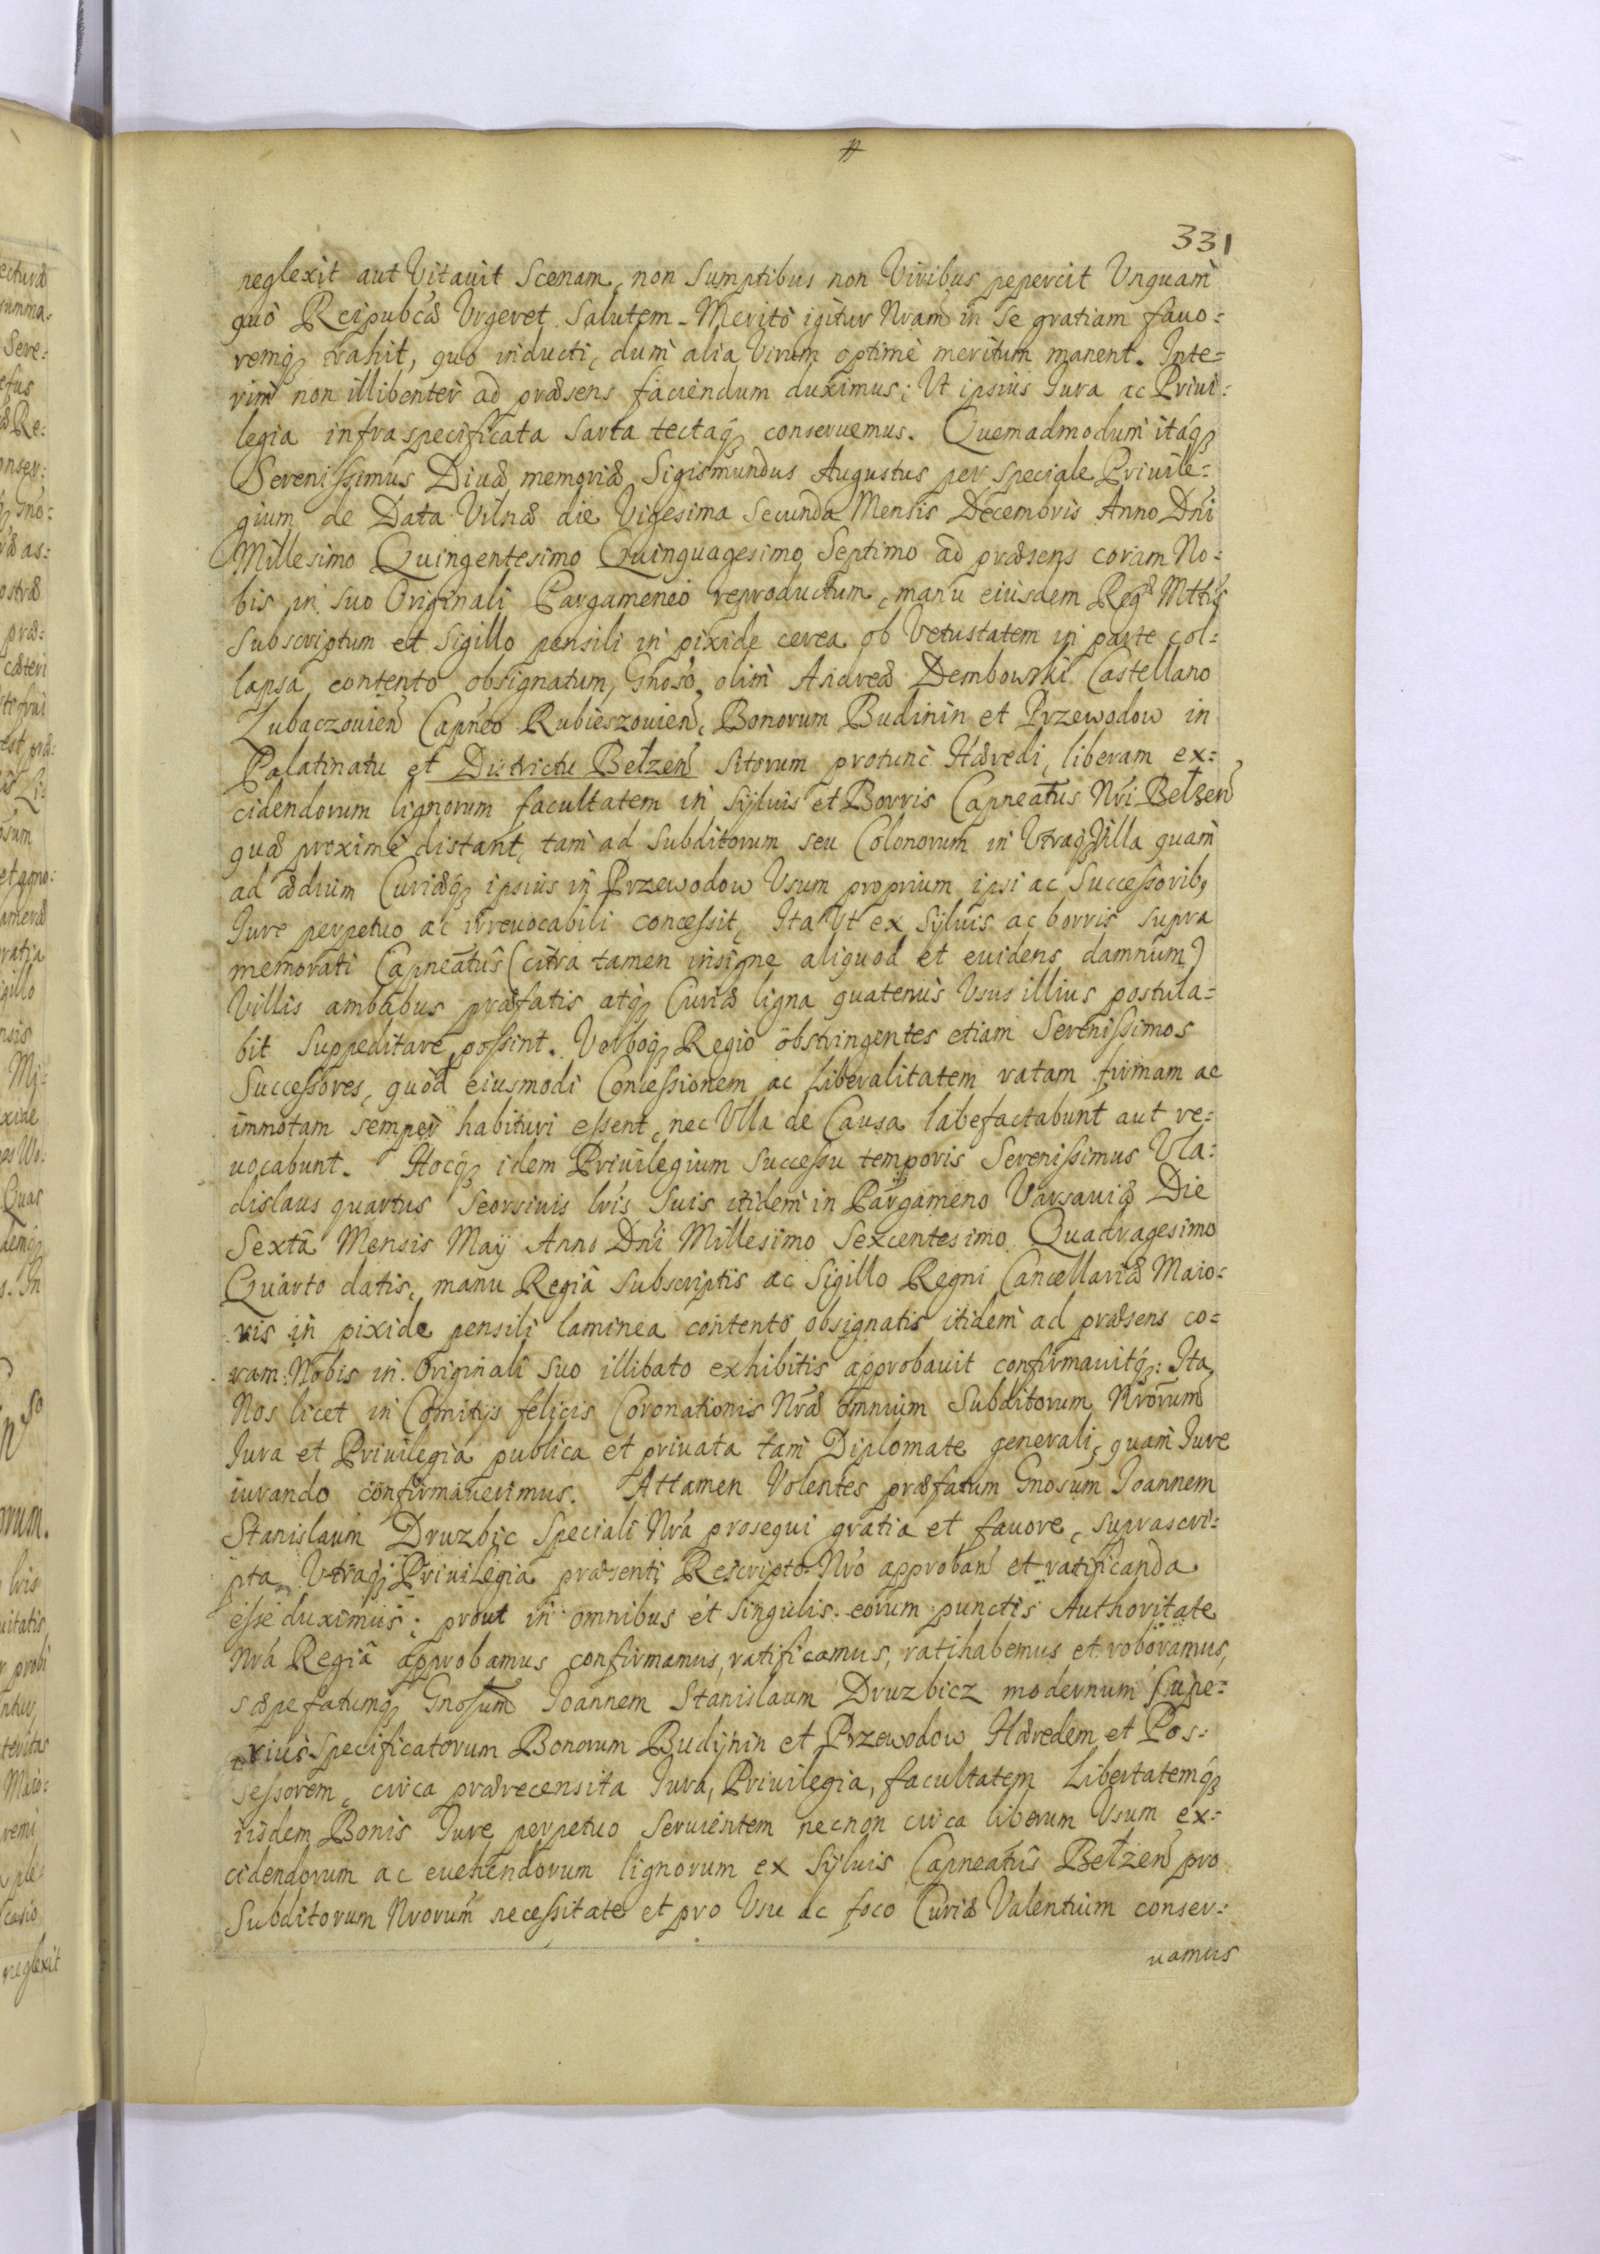 331
neglexit aut Vitauit Scenam, non Sumptibus non Viribus pepercit Vnquam
quò Reipubcæ Vrgeret Salutem. Meritò igitur Nram in Se gratiam fauo:
remq, trahit, quo inducti, dum alia Virum optimè meritum manent. Inte:
rim non illibenter ad præsens faciendum duximus; Vt ipsius Iura ac Priui:
legia infraspecificata Sarta tectaq, conseruemus. Quemadmodum itaq,
Serenissimus Diuæ memoriæ Sigismundus Augustus per Speciale Priuile:
gium de Data Vilnæ die Vigesima Secunda Mensis Decembris Anno Dni
Millesimo Quingentesimo Quinquagesimo Septimo ad præsens coram No:
bis in Suo Originali Pargameneo reproductum, manu eiusdem Regæ Mttis
Subscriptum et Sigillo pensili in pixide cerea ob Vetustatem in parte col:
lapsa contento obsignatum, Gnoso olim Andreæ Dembowski Castellano
Lubaczouien Capneo Rubieszouien, Bonorum Budinin et Przewodow in
Palatinatu et Districtu Bełzen Sitorum protunc Hæredi, liberam ex:
cidendorum lignorum facultatem in Syluis et Borris Capneatus Nri Bełzen
quæ proximè distant, tam ad Subditorum seu Colonorum in Vtraq, Villa quam
ad ædium Curiæq, ipsius in Przewodow Vsum proprium ipsi ac Successorib,
Iure perpetuo ac irreuocabili concessit, Ita Vt ex Syluis ac borris supra
memorati Capneatus (citra tamen insigne aliquod et euidens damnum)
Villis ambabus præfatis atq, Curiæ ligna quatenus Vsus illius postula:
bit Suppeditare possint. Verboq, Regio obstringentes etiam Serenissimos
Successores, quòd eiusmodi Concessionem ac Liberalitatem ratam firmam ac
immotam semper habituri essent, nec Vlla de Causa labefactabunt aut re:
uocabunt. Hocq, idem Priuilegium Successu temporis Serenissimus Vla:
dislaus quartus Seorsiuis lris Suis itidem in Pargameno Varsauiæ Die
Sextâ Mensis Maÿ Anno Dni Millesimo Sexcentesimo Quadragesimo
Quarto datis, manu Regiâ Subscriptis ac Sigillo Regni Cancellariæ Maio:
ris in pixide pensili laminea contento obsignatis itidem ad præsens co:
ram Nobis in Originali Suo illibato exhibitis approbauit confirmauitq,: Ita
Nos licet in Comitys felicis Coronationis Nræ omnium Subditorum Nrorum
Iura et Priuilegia publica et priuata tam Diplomate generali, quam Iure
iurando confirmauerimus. Attamen Volentes præfatum Gnosum Ioannem
Stanislaum Druzbic Speciali Nra prosequi gratia et fauore, suprascri:
pta Vtraq, Priuilegia præsenti Rescripto Nro approban et ratificanda
esse duximus; prout in omnibus et Singulis eorum punctis Authoritate
Nra Regiâ approbamus confirmamus, ratificamus, ratihabemus et roboramus,
sæpefatumq, Gnosum Ioannem Stanislaum Druzbicz modernum Supe:
rius Specificatorum Bonorum Budynin et Przewodow Hæredem et Pos:
sessorem, circa prærecensita Iura, Priuilegia, facultatem Libertatemq,
iisdem Bonis Iure perpetuo Seruientem necnon circa liberum Vsum ex:
cidendorum ac euehendorum lignorum ex Syluis Capneatus Bełzen pro
Subditorum Nrorum necessitate et pro Vsu ac foco Curiæ Valentium conser:
uamus